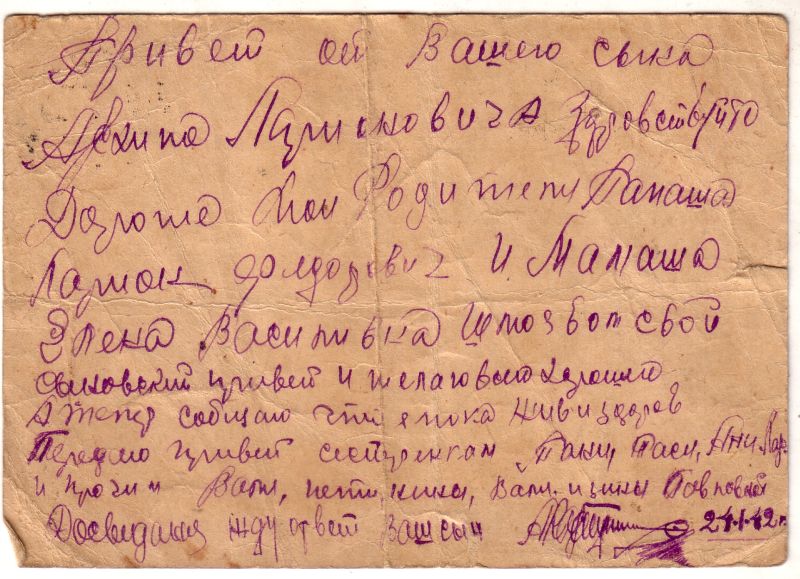 Привет от Вашего сына
Архипа Ларионовича Здравствуйте
Дорогие Мои Родители Папаша
Ларион Федорович И Мамаша
Елена Василивна Шлю вам свой
сыновский привет и желаю всего хорошего
А теперь сообщаю что я пока жив и здоров
Передаю привет сестренкам Тани, Таси, Ани
и прочим Вали, пети, нины, Вали. и зины Павловной
Досвидания жду ответ Ваш сын 21.1.42г.